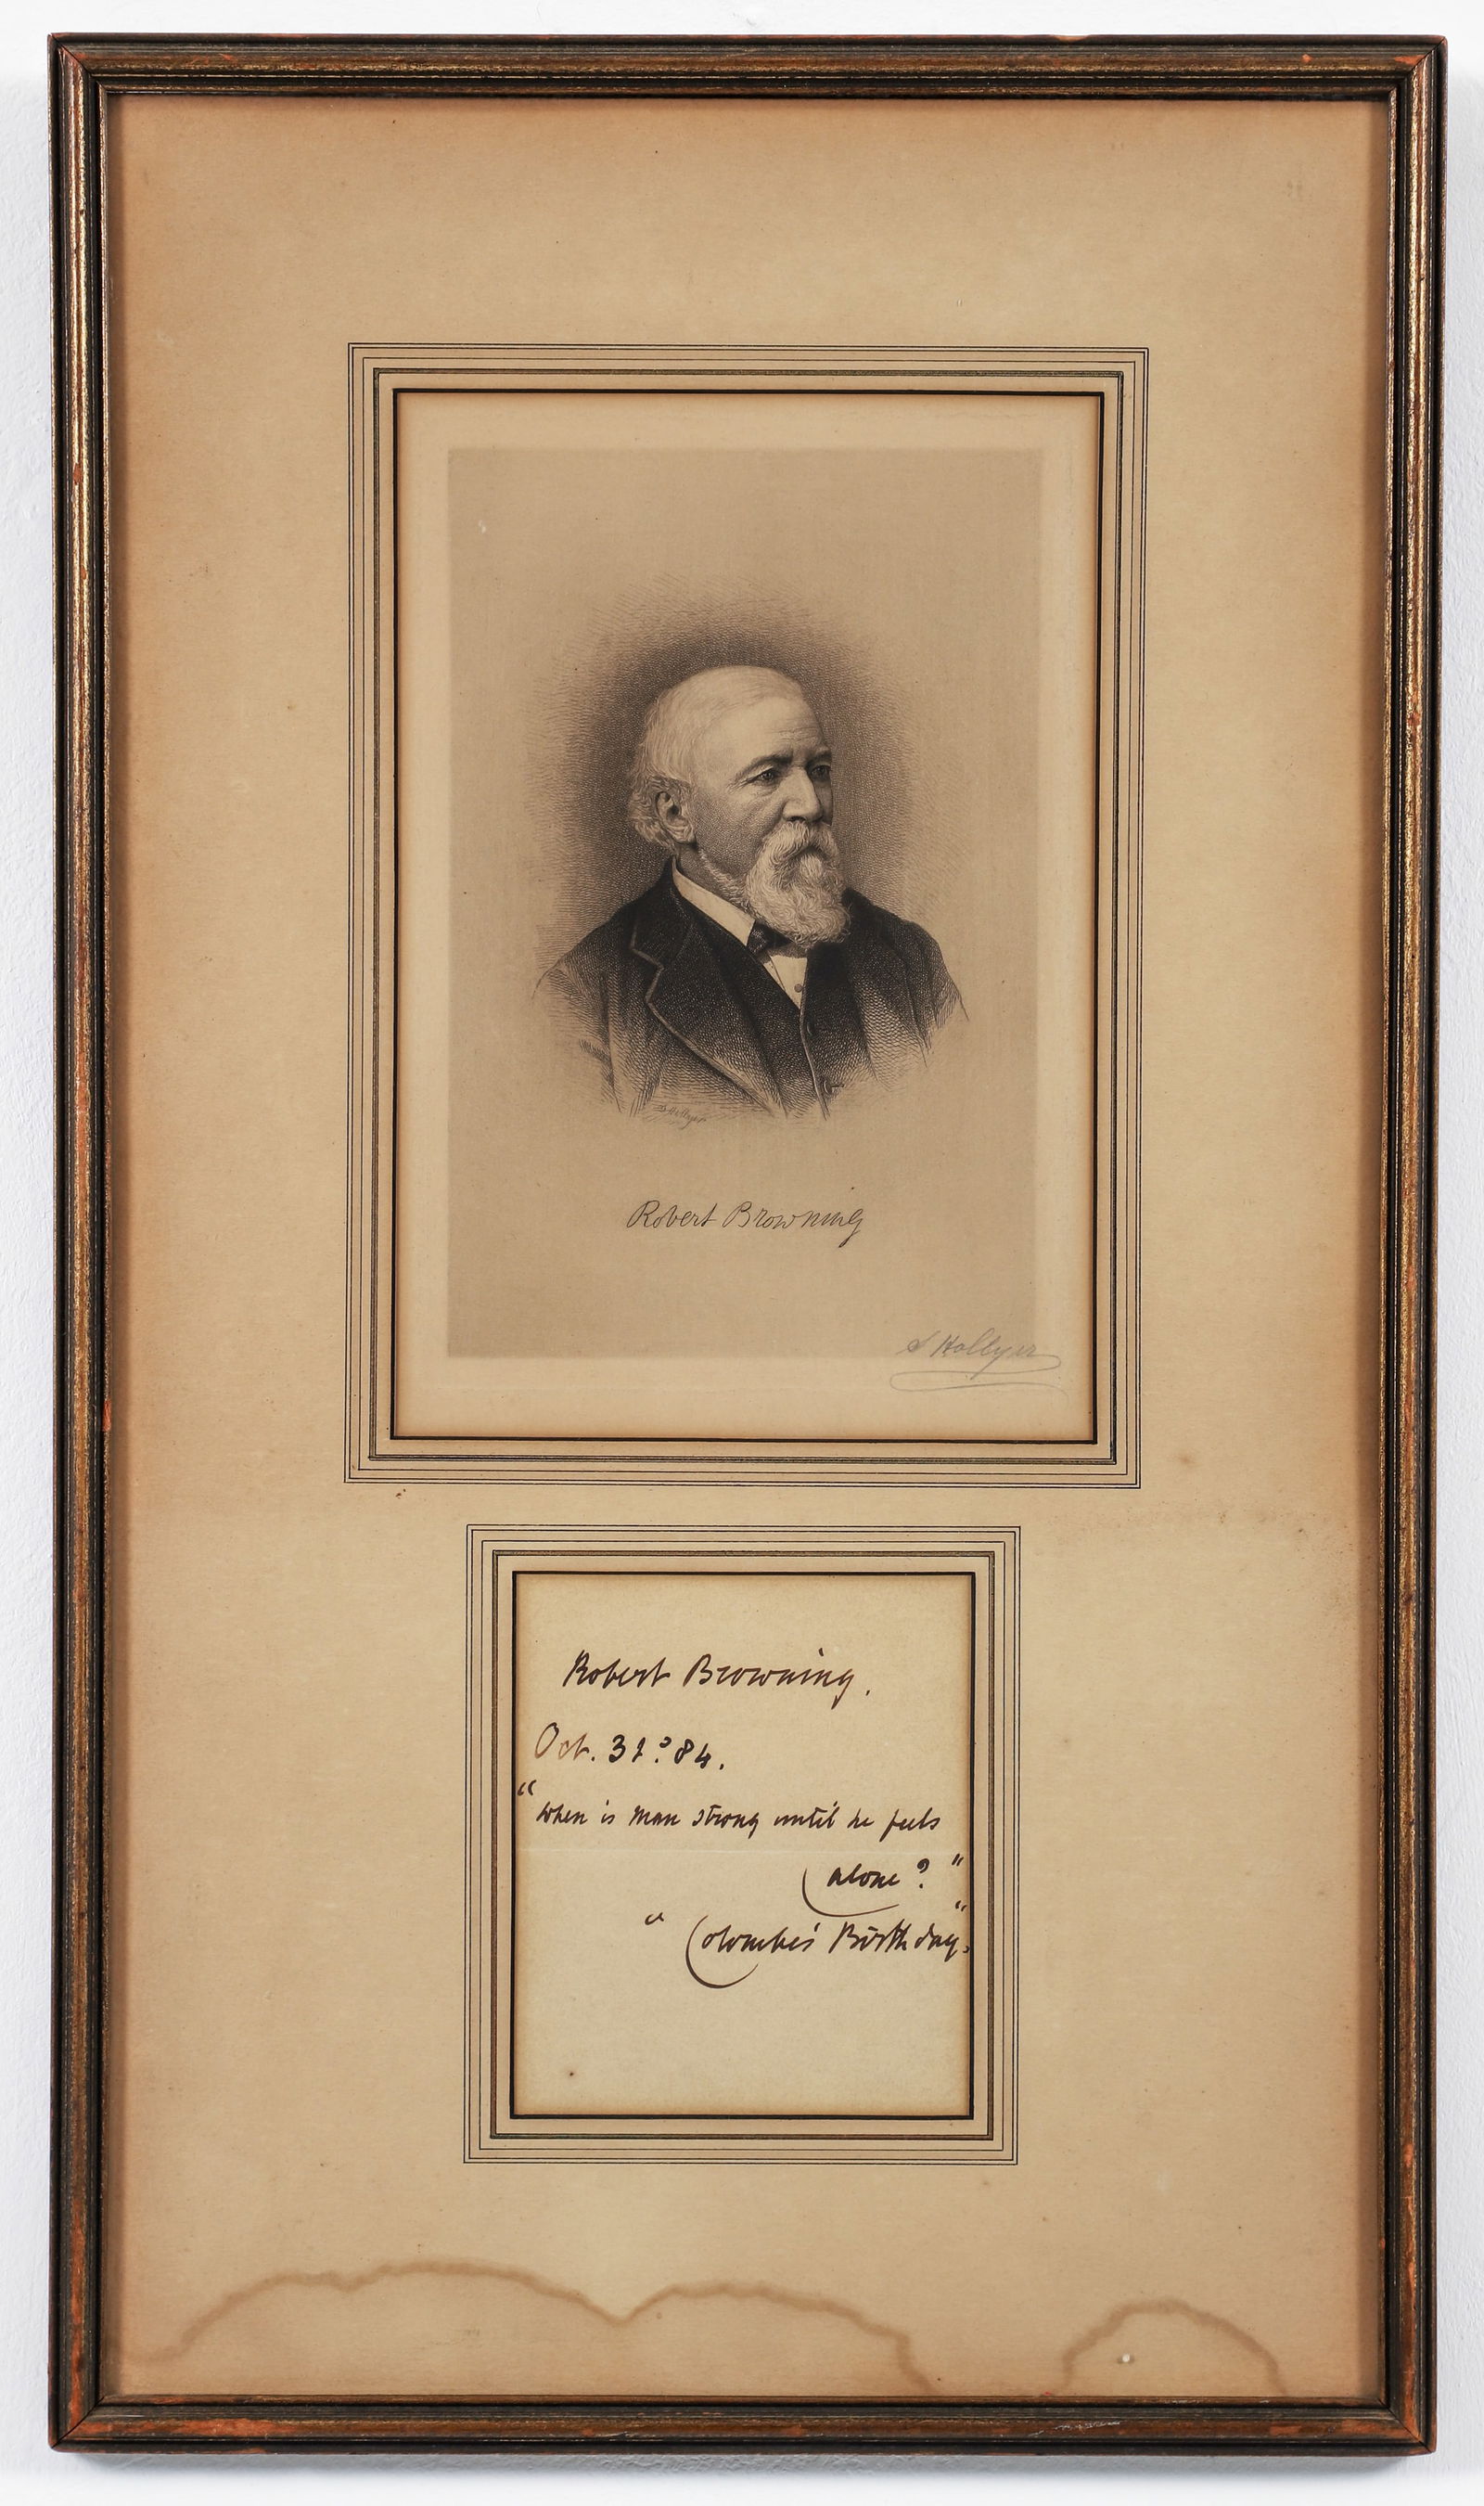 S Hollyer
Robert Browning
S Hollyer
Robert Browning.
Oct. 31? 84.
"When is man strong until he feels
alone?"
"Colombe's Birthday."